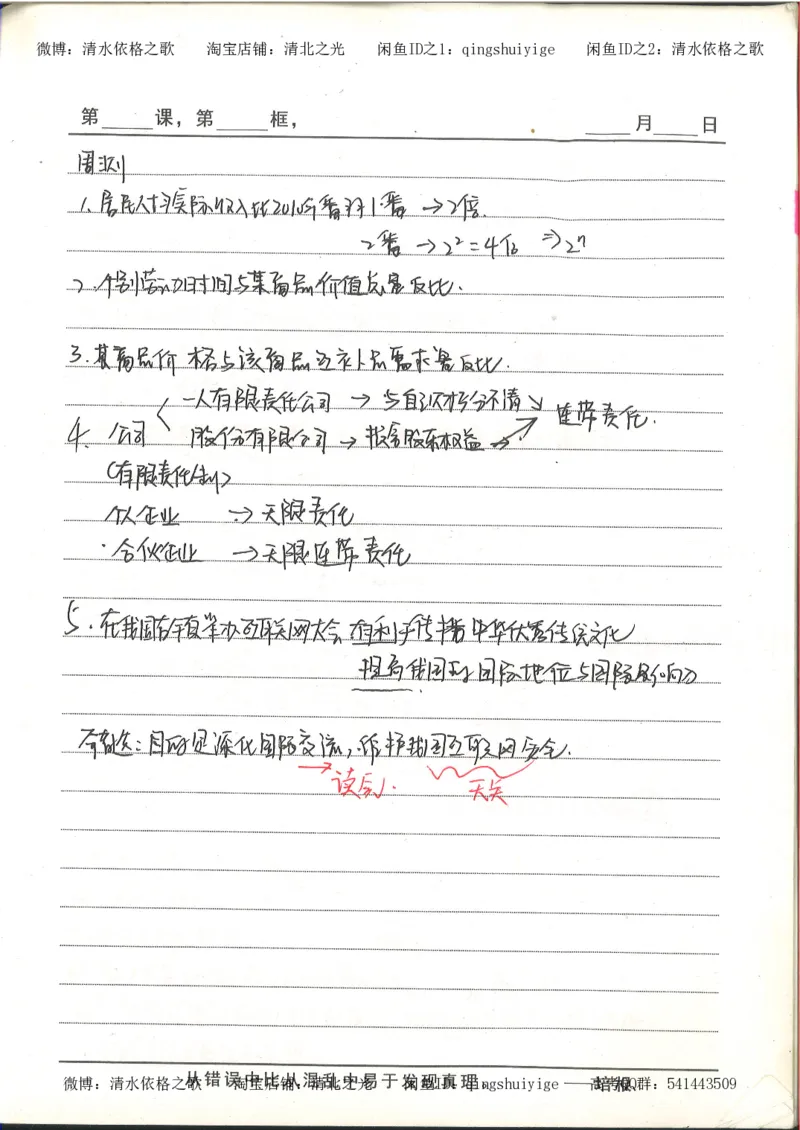 微博：清水依格之歌 淘宝店铺：清北之光 闲鱼ID之1：qingshuiyige 闲鱼ID之2：清水依格之歌
第 课，第 框， 月 日
周测
1、居民人均实际收入比2010年翻1番 → 2倍.
2番 → 2²=4倍 ⇒ 2ⁿ
2. 个别劳动时间与某商品价值总量反比.
3. 某商品价格与该商品互补品需求量反比.
一人有限责任公司 → 与自己财产分不清 ↘ 连带责任.
4、公司 股份有限公司 → 损害股东权益 ↗
（有限责任制）
个人企业 → 无限责任
·合伙企业 → 无限连带责任
5. 在我国举办互联网大会 有利于传播中华优秀传统文化
提高我国的国际地位与国际影响力
目的是深化国际交流，维护我国互联网安全.
→ 误后.
无关
从错误中比从混乱中易于发现真理。 ——培根
微博：清水依格之歌 淘宝店铺：清北之光 闲鱼ID：qingshuiyige QQ群：541443509